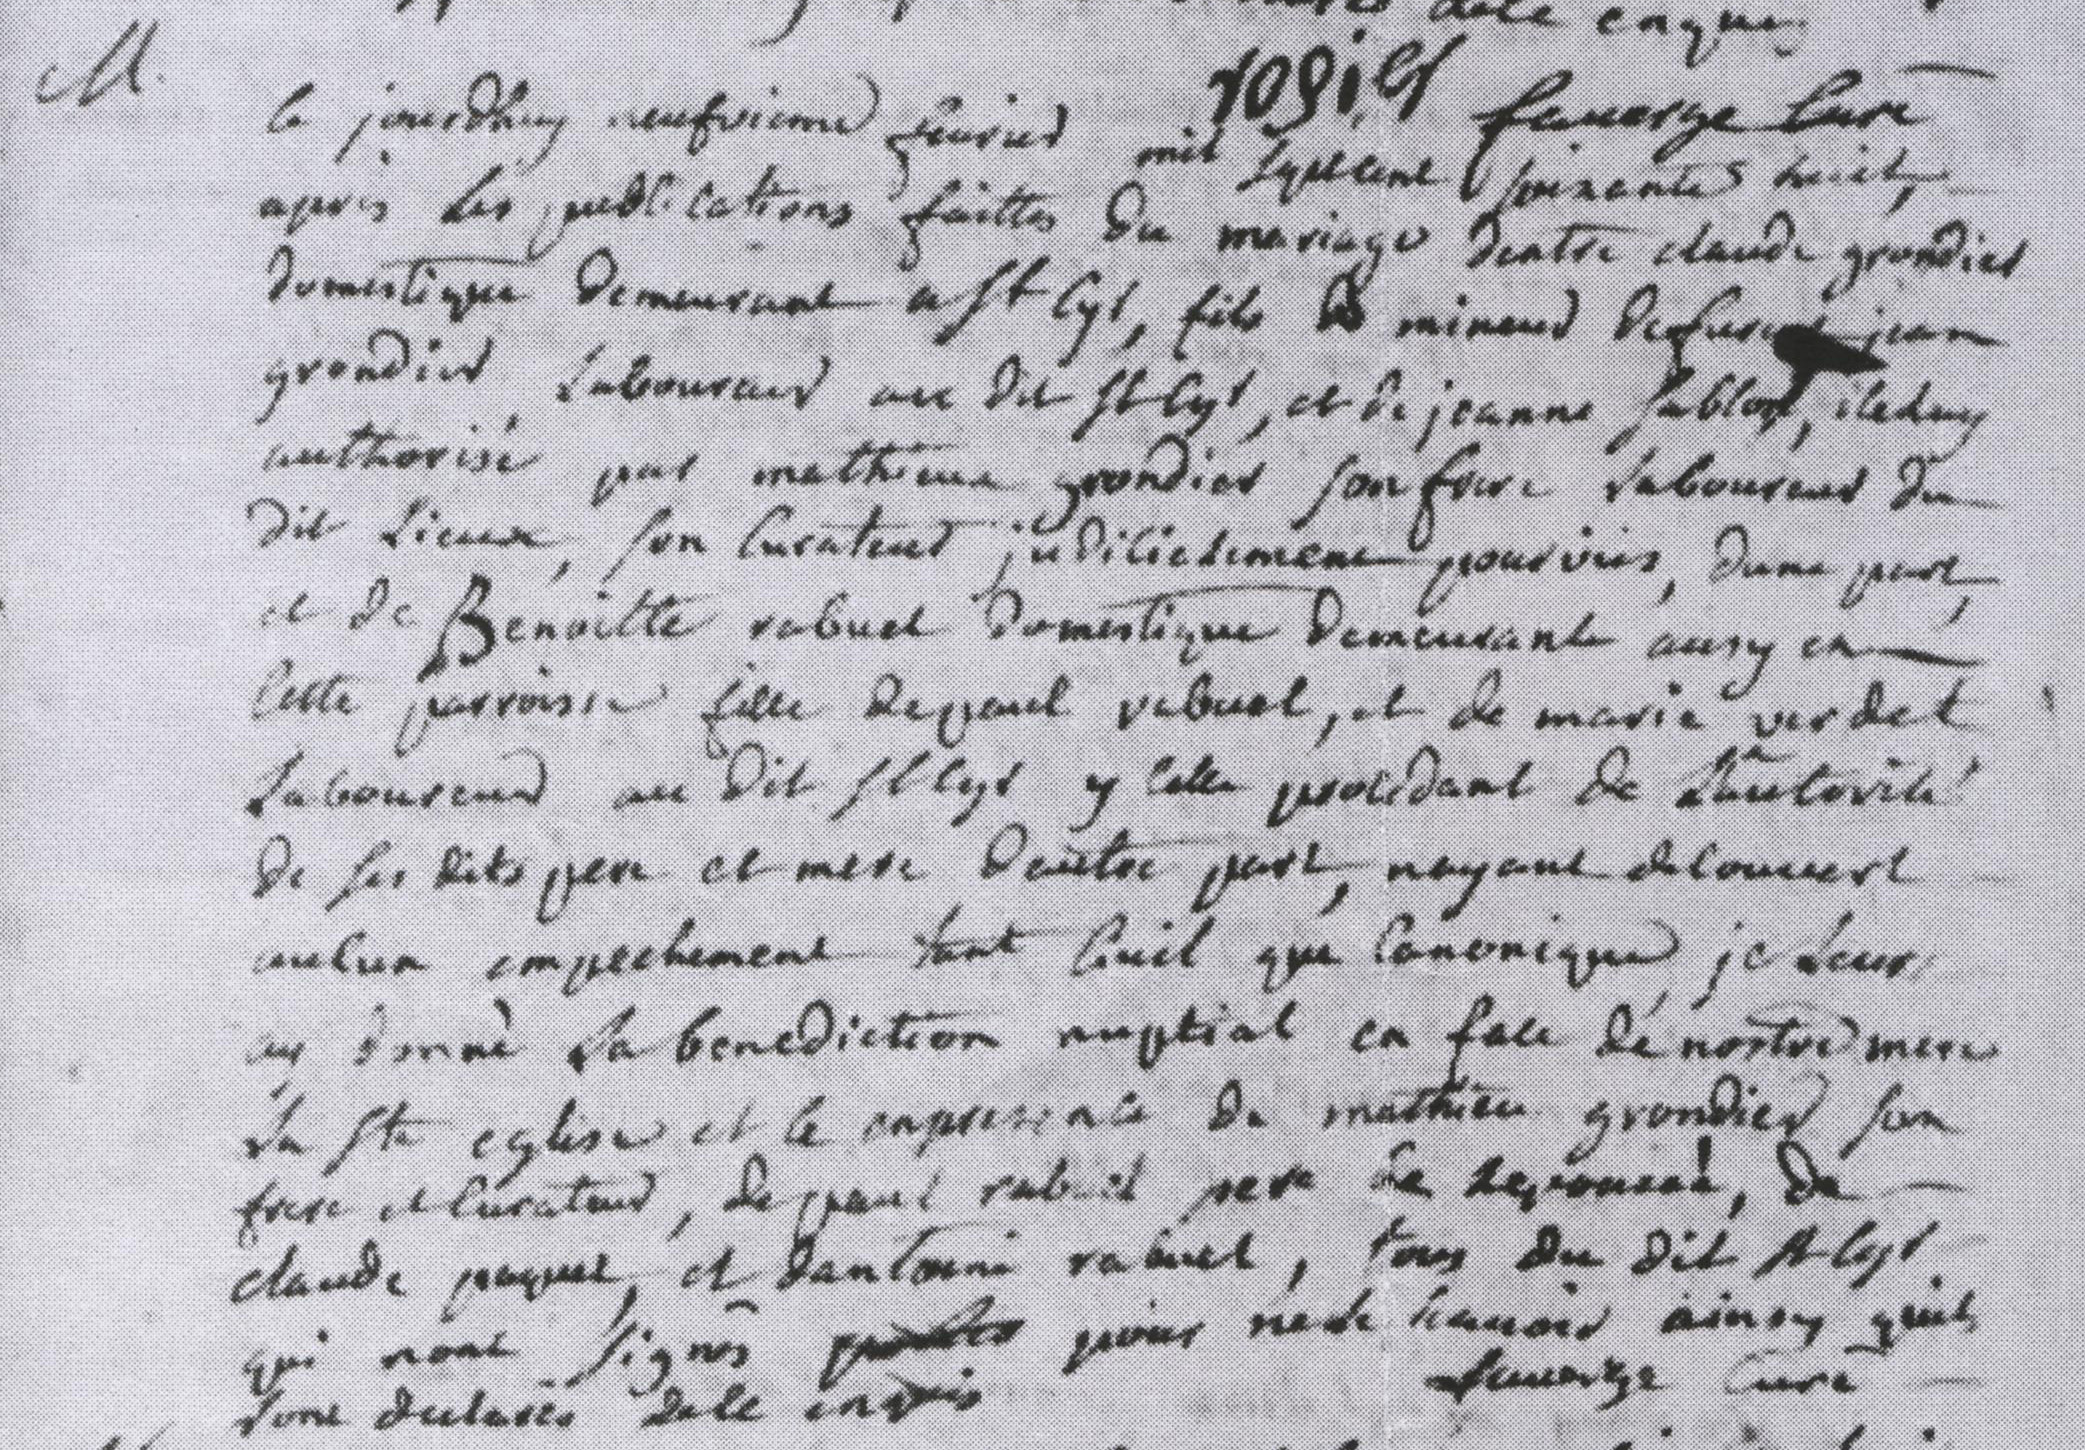 dele enquis
rosier faucorge Curé
M.
Ce jourdhuy neufvieme fevrier mil septcent soixante huit,
apres les publications faittes du mariage dentre claude grondier
domestique demeurant a St Cyr, fils mineur defunt jean
grondier Laboureur au dit St Cyr, et de jeanne sablon, iceluy
authorisé par mathieu grondier son frere Laboureur du
dit Lieux, son Curateur judiciairement pourvus, dune part,
et de Benoitte rabuel domestique demeurant aussy en
Cette parroisse fille depaul rabuel, et de marie verdet
Laboureur au dit St Cyr ycelle procedant de Lautorité
de ses dits pere et mere dautre part, nayant decouvert
aucun empechement tant Civil que Canonique, je Leur
ay donné La benediction nuptial en face de nostre mere
La Ste eglise et ce enpresence de mathieu grondier son
frere et Curateur, de paul rabuel pere de Lepouse, de
claude paquet et dantoine rabuel, tous du dit St Cyr
qui nont signés pour nele scavoir ainsy quils
sont declarés dele enquis faucorge Curé